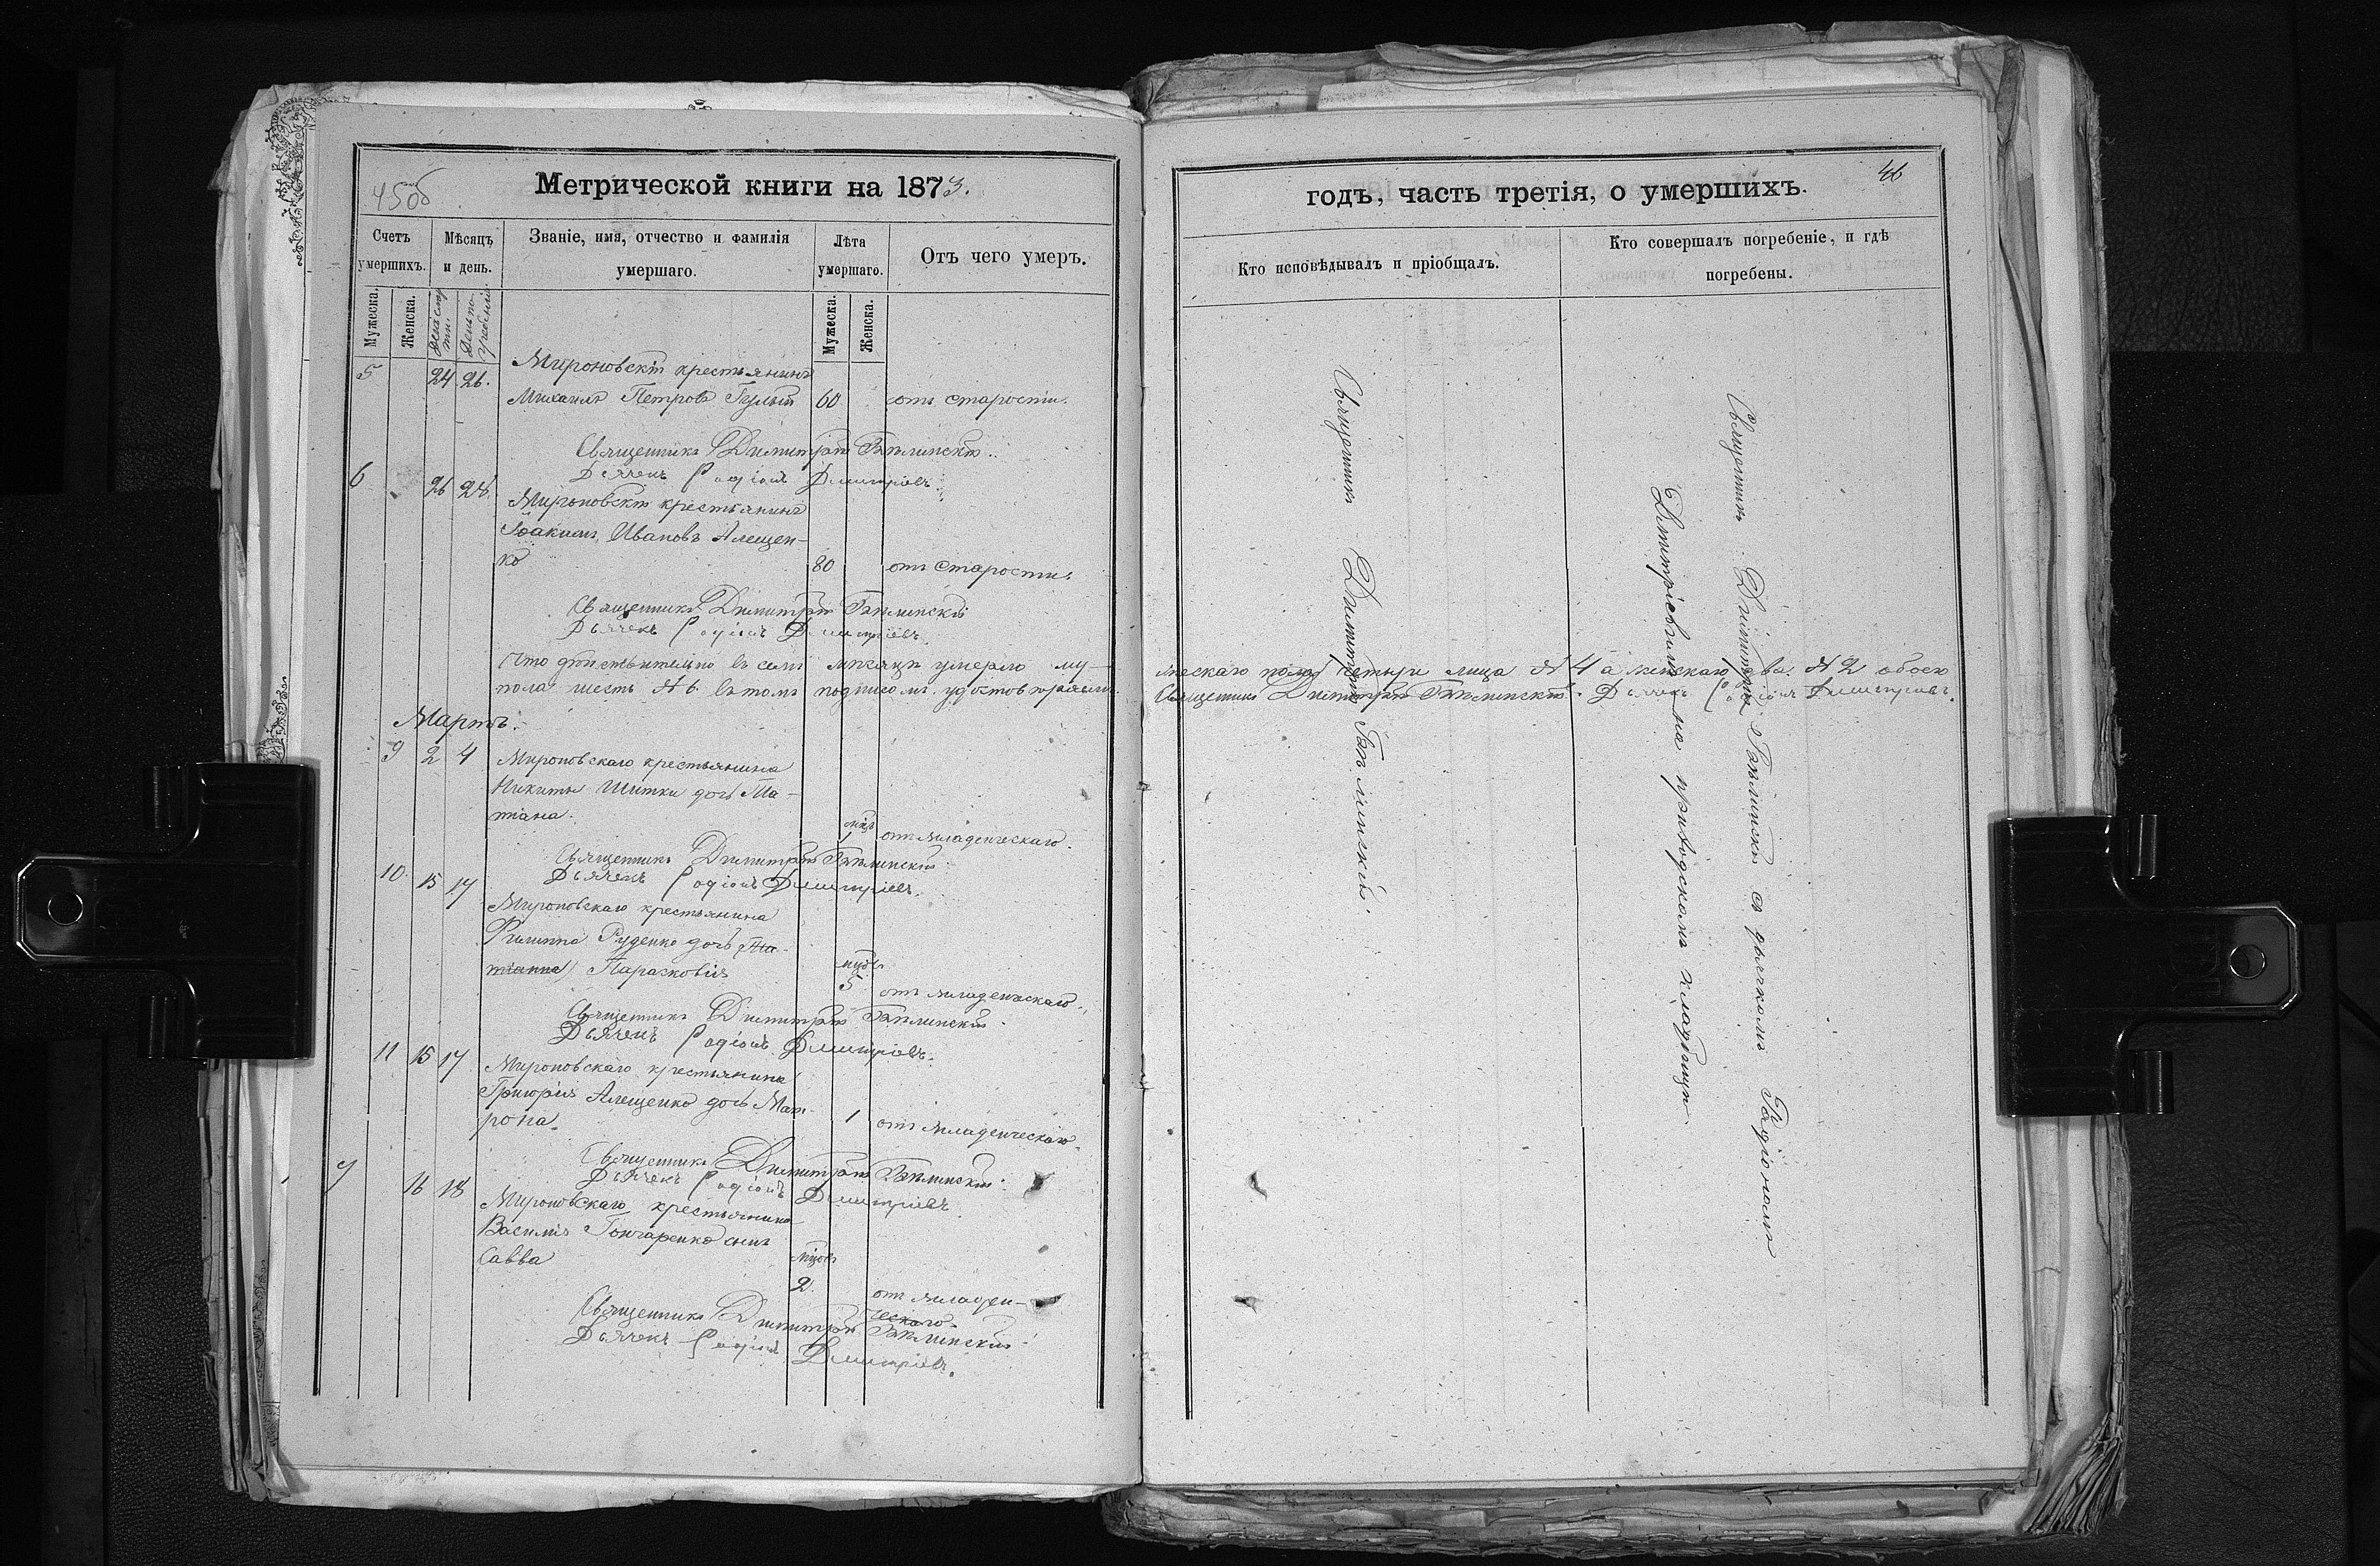 45об
Метрической книги на 1873.
Счетъ умершихъ.
Мѣсяцъ и день.
Званіе, имя, отчество и фамилія умершаго.
Лѣта умершаго.
Отъ чего умеръ.
Мужеска.
Женска.
День смерти.
День погребенія.
Мужеска.
Женска.
5 24 26. Мироновскій крестьянинъ
Михаилъ Петровъ 60 отъ старости.
Священникъ Димитрій
Дьячекъ Родіонъ Димитріевъ.
6 26 28. Мироновскій крестьянинъ
Іоакимъ Ивановъ Алещен-
ко 80 отъ старости.
Священникъ Димитрій
Дьячекъ Родіонъ Димитріевъ.
Что дѣйствительно въ семъ мѣсяцѣ умерло му-
пола шесть №6. въ томъ подписомъ удостовѣряемъ.
Мартъ.
9 2 4 Мироновскаго крестьянина
Никиты Шитки дочь Та-
тіана. мцъ
1 отъ младенческаго.
Священникъ Димитрій
Дьячекъ Родіонъ Димитріевъ.
10. 15 17 Мироновскаго крестьянина
Филиппа Руденко дочь Та-
тіанна Параковія мцовъ
5 отъ младенческаго.
Священникъ Димитрій
Дьячекъ Родіонъ Димитріевъ.
11 15 17 Мироновскаго крестьянина
Григорія Алещенко дочь Мат-
рона. 1 отъ младенческаго.
Священникъ Димитрій
Дьячекъ Родіонъ Димитріевъ.
7 16 18 Мироновскаго крестьянина
Василія Гончаренко сынъ
Савва мцовъ
2. отъ младен-
ческаго.
Священникъ Димитрій
Дьячекъ Родіонъ Димитріевъ.
46
годъ, часть третія, о умершихъ.
Кто исповѣдывалъ и пріобщалъ.
Кто совершалъ погребеніе, и гдѣ погребены.
жескаго пола четыри лица №4 а женскаго два №2 обоего
Священникъ Димитрій Дьячекъ Родіонъ Димитріевъ.
Священникъ Димитрій
Священникъ Димитрій съ дьячкомъ Родіономъ
Димитріевымъ на приходскомъ кладбищѣ